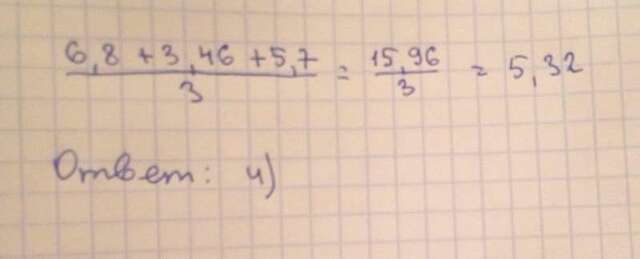 6,8 + 3,46 + 5,7 / 3 = 15,96 / 3 = 5,32
Ответ: 4)